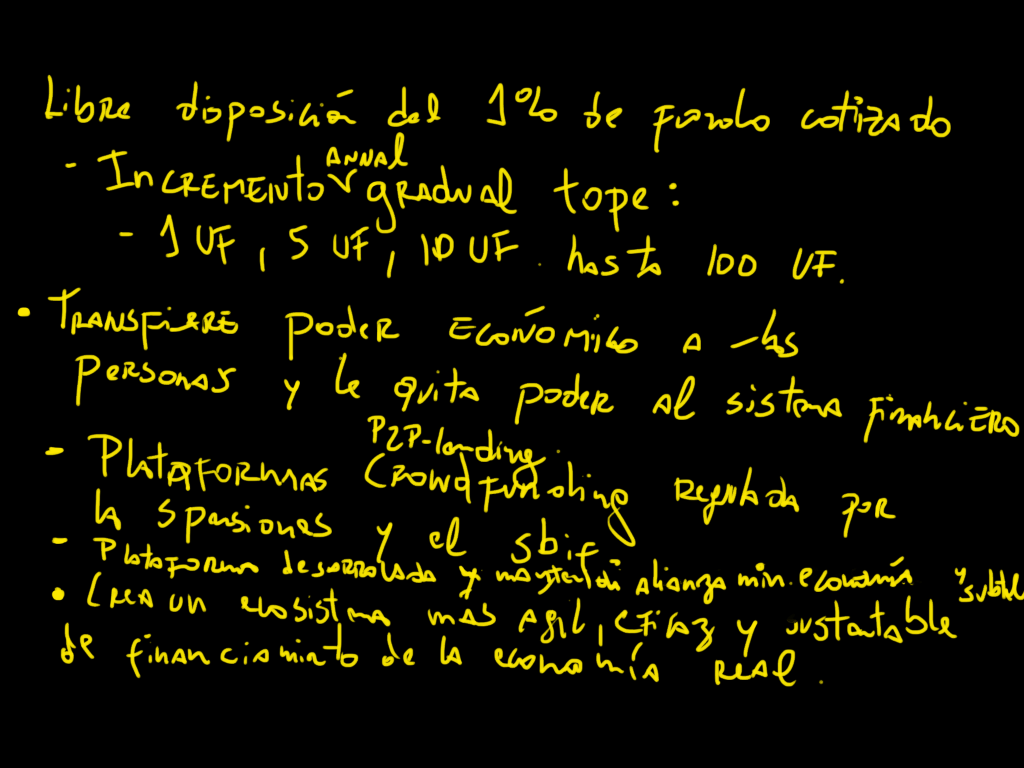 Libre disposición del 1% de fondo cotizado
- Incremento ANNAL gradual tope:
- 1 UF, 5 UF, 10 UF. hasta 100 UF.
• Transfiere poder económico a las
personas y le quita poder al sistema financiero
P2P-landing.
- Plataformas Crowdfunding regulada por
la spensiones y el sbif
- Plataforma desarrolada y alianza min. economía y
• Crea un ecosistema más agil, eficaz y sustentable
de financiamiento de la economía real.